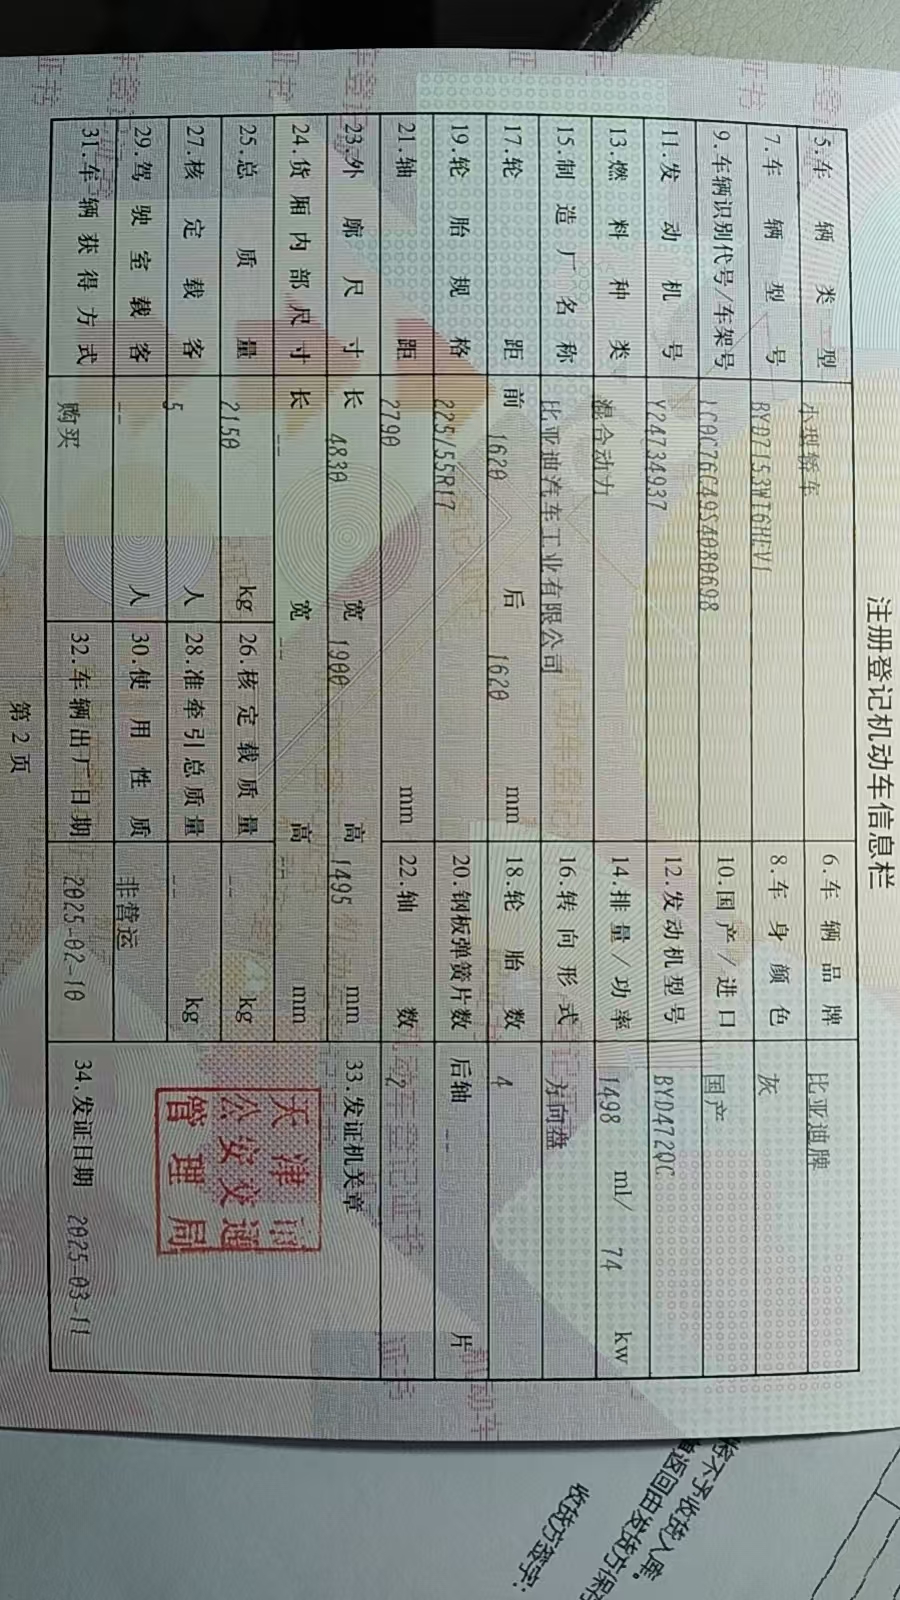 注册登记机动车信息栏
5.车辆类型 小型轿车 6.车辆品牌 比亚迪牌
7.车辆型号 BYD7153WT6HEV1 8.车身颜色 灰
9.车辆识别代号/车架号 LC0C76C49S4080698 10.国产/进口 国产
11.发动机号 Y24734937 12.发动机型号 BYD472QC
13.燃料种类 混合动力 14.排量/功率 1498 ml/ 74 kw
15.制造厂名称 比亚迪汽车工业有限公司 16.转向形式 方向盘
17.轮距 前 1620 后 1620 mm 18.轮胎数 4
19.轮胎规格 225/55R17 20.钢板弹簧片数 后轴 -- 片
21.轴距 2790 mm 22.轴数 2
23.外廓尺寸 长 4830 宽 1900 高 1495 mm 33.发证机关章
24.货厢内部尺寸 长 -- 宽 -- 高 -- mm
25.总质量 2150 kg 26.核定载质量 -- kg
27.核定载客 5 人 28.准牵引总质量 -- kg
29.驾驶室载客 -- 人 30.使用性质 非营运
31.车辆获得方式 购买 32.车辆出厂日期 2025-02-10 34.发证日期 2025-03-11
天津市
公安交通
管理局
第2页
收货方签字: